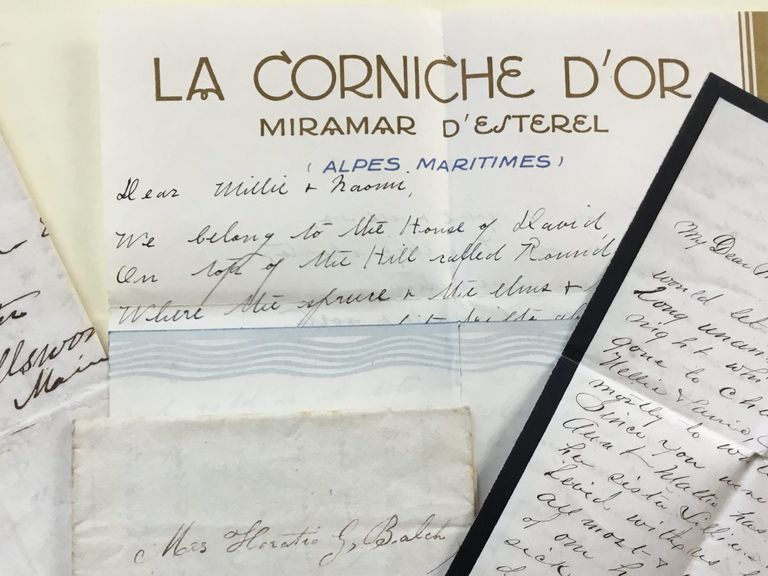 LA CORNICHE D'OR
MIRAMAR D'ESTEREL
(ALPES. MARITIMES)
Dear Millie & Naomi,
We belong to the House of David,
On top of the Hill called Round
Where the spruce & the elms &
Mrs Horatio G. Balch
llswor
Main
My Dear
would let
Long unan
night wh
gone to ch
Nellie &
mostly to w
Since you were
Ann L. has
her sister
lived with us
almost
of one h
sick